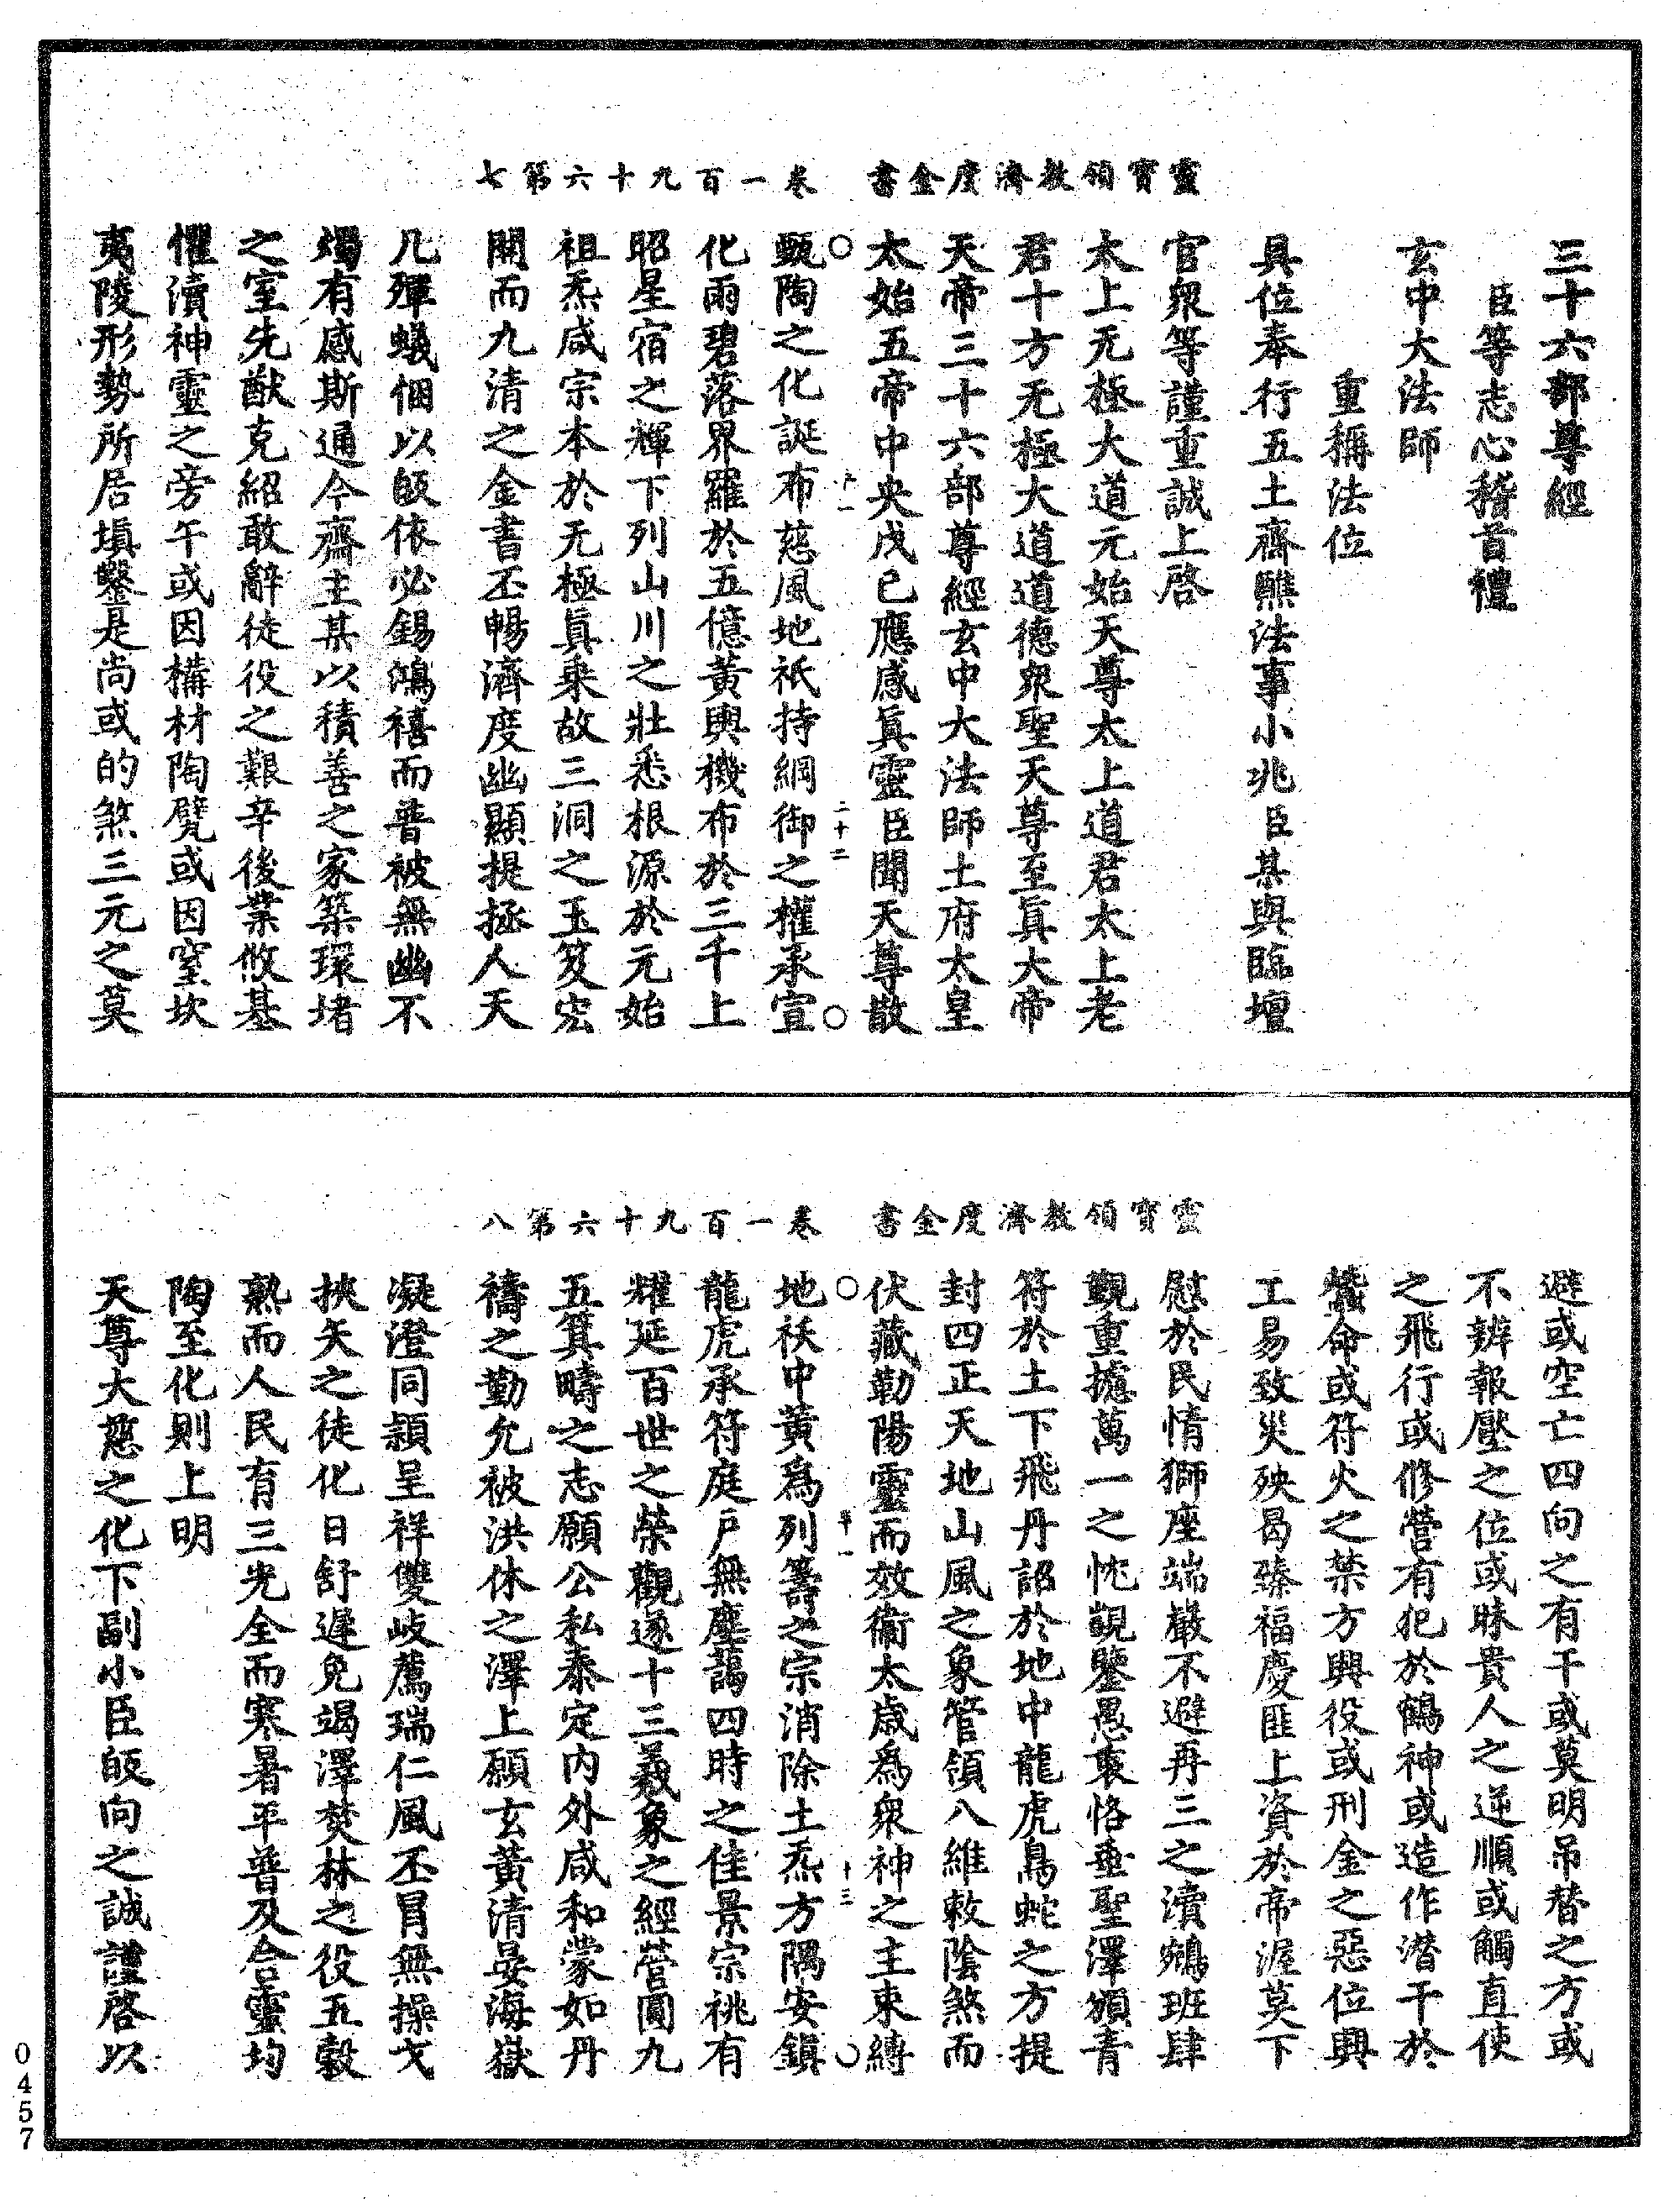 靈寶領教濟度金書　卷一百九十六第七
三十六部尊經
臣等志心稽首禮
玄中大法師
重稱法位
具位奉行五土齋醮法事小兆臣某與臨壇
官衆等謹重誠上啓
太上无極大道元始天尊太上道君太上老
君十方无極大道道德衆聖天尊至眞大帝
天帝三十六部尊經玄中大法師土府太皇
太始五帝中央戊己應感眞靈臣聞天尊散
甄陶之化誕布慈風地祇持綱御之權承宣
化雨碧落界羅於五億黃輿機布於三千上
昭星宿之輝下列山川之壯悉根源於元始
祖炁咸宗本於无極眞乘故三洞之玉笈宏
開而九清之金書丕暢濟度幽顯提拯人天
凡殫蟻悃以皈依必錫鴻禧而普被無幽不
燭有感斯通今齋主某以積善之家築環堵
之室先猷克紹敢辭徒役之艱辛後業攸基
懼瀆神靈之旁午或因構材陶甓或因窒坎
夷陵形勢所居塡鑿是尚或的煞三元之莫
靈寶領教濟度金書　卷一百九十六第八
避或空亡四向之有干或莫明吊替之方或
不辨報壓之位或昧貴人之逆順或觸直使
之飛行或修營有犯於鶴神或造作潜干於
蠶命或符火之禁方興役或刑金之惡位興
工易致災殃曷臻福慶匪上資於帝渥莫下
慰於民情獅座端嚴不避再三之瀆鵷班肆
覲重攄萬一之忱覬鑒愚衷恪垂聖澤頒青
符於土下飛丹詔於地中龍虎鳥蛇之方提
封四正天地山風之象管領八維敕陰煞而
伏藏勒陽靈而效衞太歲爲衆神之主束縛
地祅中黃爲列籌之宗消除土炁方隅安鎭
龍虎承符庭戶無塵藹四時之佳景宗祧有
耀延百世之榮觀遂十三羲象之經營圓九
五箕疇之志願公私泰定内外咸和蒙如丹
禱之勤允被洪休之澤上願玄黃清晏海嶽
凝澄同頴呈祥雙岐薦瑞仁風丕冒無操戈
挾矢之徒化日舒遲免竭澤焚林之役五穀
熟而人民有三光全而寒暑平普及含靈均
陶至化則上明
天尊大慈之化下副小臣皈向之誠謹啓以
0457